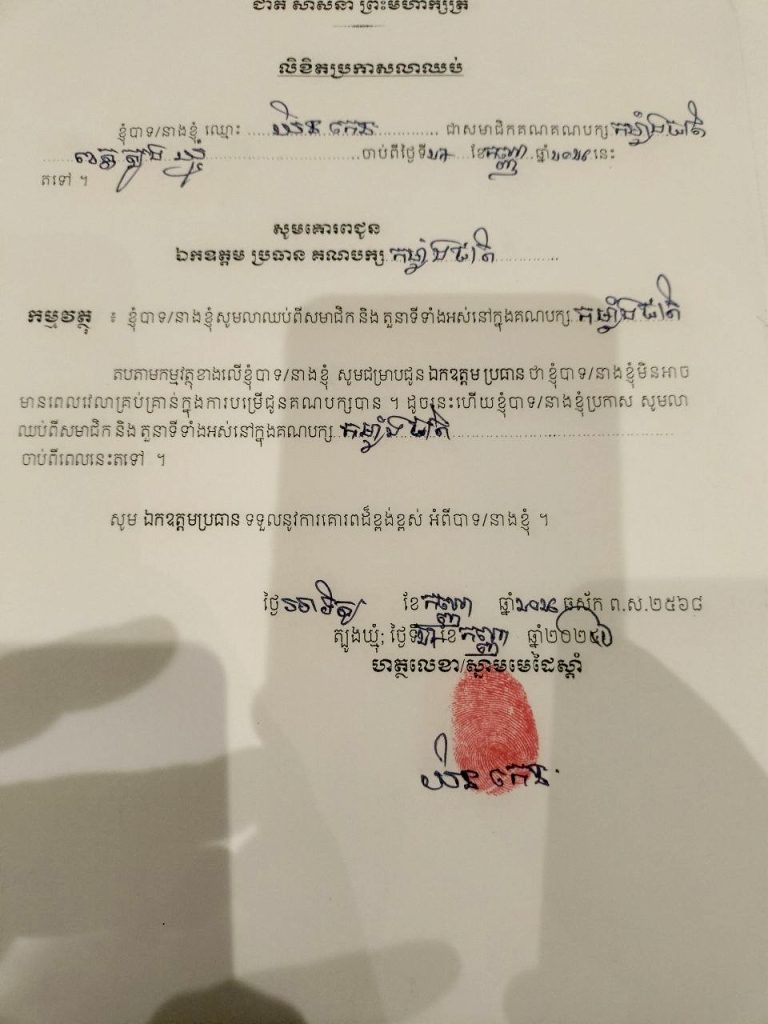 ជាតិ សាសនា ព្រះមហាក្សត្រ
លិខិតប្រកាសលាឈប់
ខ្ញុំបាទ/នាងខ្ញុំ ឈ្មោះ ........ ជាសមាជិកគណគណបក្ស កម្លាំងជាតិ
ខេត្តត្បូងឃ្មុំ ........ ចាប់ពីថ្ងៃទី ខែ កញ្ញា ឆ្នាំ នេះ
តទៅ ។
សូមគោរពជូន
ឯកឧត្តម ប្រធាន គណបក្ស កម្លាំងជាតិ
កម្មវត្ថុ ៖ ខ្ញុំបាទ/នាងខ្ញុំសូមលាឈប់ពីសមាជិក និង តួនាទីទាំងអស់នៅក្នុងគណបក្ស កម្លាំងជាតិ
តបតាមកម្មវត្ថុខាងលើខ្ញុំបាទ/នាងខ្ញុំ សូមជម្រាបជូន ឯកឧត្តម ប្រធាន ថា ខ្ញុំបាទ/នាងខ្ញុំមិនអាច
មានពេលវេលាគ្រប់គ្រាន់ក្នុងការបម្រើជូនគណបក្សបាន ។ ដូចនេះហើយខ្ញុំបាទ/នាងខ្ញុំប្រកាស សូមលា
ឈប់ពីសមាជិក និង តួនាទីទាំងអស់នៅក្នុងគណបក្ស កម្លាំងជាតិ
ចាប់ពីពេលនេះតទៅ ។
សូម ឯកឧត្តមប្រធាន ទទួលនូវការគោរពដ៏ខ្ពង់ខ្ពស់ អំពីបាទ/នាងខ្ញុំ ។
ថ្ងៃ អាទិត្យ ខែ កញ្ញា ឆ្នាំ ឆស័ក ព.ស.២៥៦៨
ត្បូងឃ្មុំ; ថ្ងៃទី ខែ កញ្ញា ឆ្នាំ២០២៤
ហត្ថលេខា/ស្នាមមេដៃស្តាំ